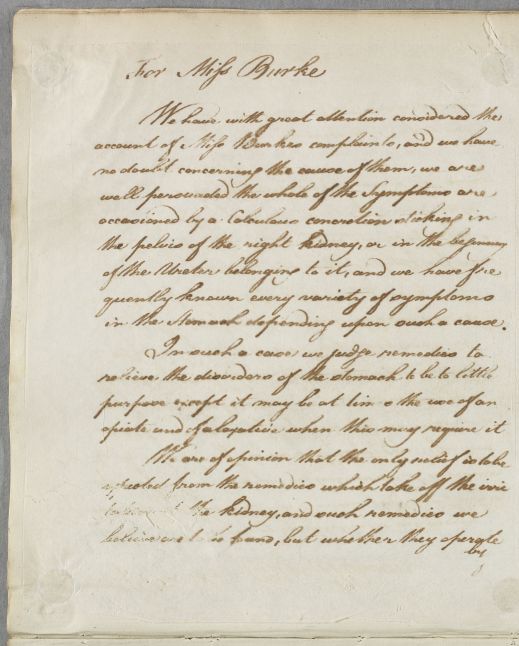 For Miss Burke
We have with great attention considered the
account of Miss Burkes complaints, and we have
no doubt concerning the cause of them, we are
well perswaded the whole of the Symptoms are
occasioned by a Calculous concretion sticking in
the pelvis of the right kidney, or in the beginning
of the Ureter belonging to it, and we have fre
quently known every variety of symptoms
in the stomach depending upon such a cause.
In such a case we judge remedies to
relieve the disorders of the stomach to be to little
purpose except it may be at times the use of an
opiate and of a laxative when this may require it
We are of opinion that the only relief is to be
expected from the remedies which take off the irri
the kidney, and such remedies we
believe are to be found, but whether they operate
by